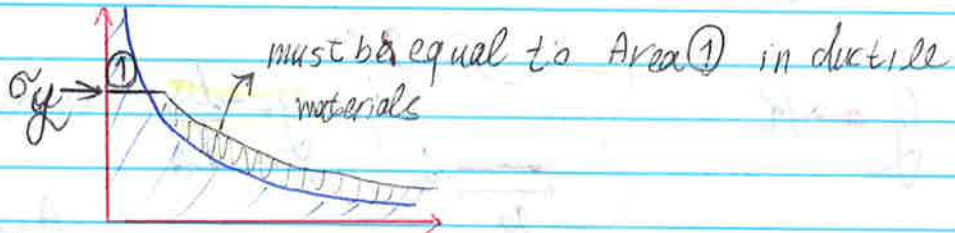 ① must be equal to Area ① in ductile
σy materials